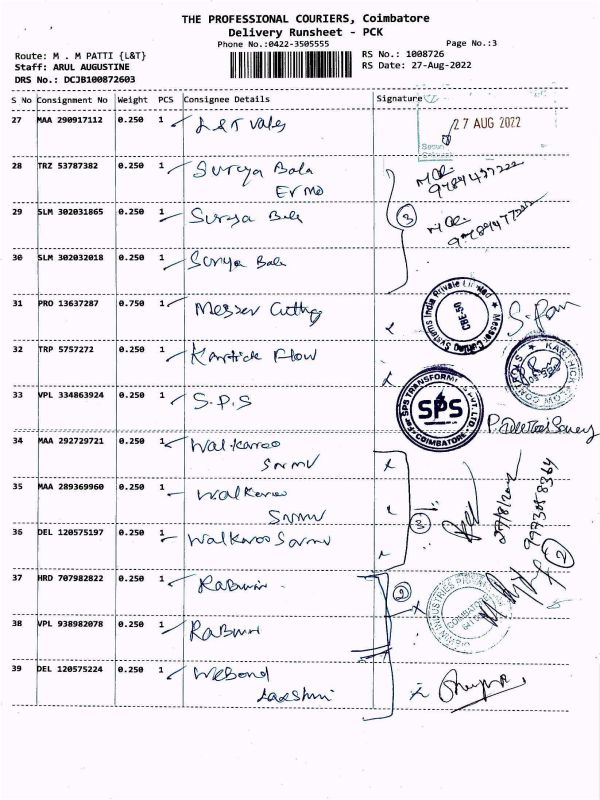 THE PROFESSIONAL COURIERS, Coimbatore
Delivery Runsheet - PCK
Phone No.:0422-3505555
Page No.:3
Route: M . M PATTI {L&T}
RS No.: 1008726
Staff: ARUL AUGUSTINE
RS Date: 27-Aug-2022
DRS No.: DCJB100872603
S No Consignment No Weight PCS Consignee Details Signature
27 MAA 290917112 0.250 1 L&T Valves
27 AUG 2022
28 TRZ 53787382 0.250 1 Surya Bala
29 SLM 302031865 0.250 1 Surya Bala
3
30 SLM 302032018 0.250 1 Surya Bala
31 PRO 13637287 0.750 1 Messer Cutting
Messer Cutting Systems India Private Limited
CBE-50
32 TRP 5757272 0.250 1 Kartick Flow
KARTHICK FLOW CONTROLS
33 VPL 334863924 0.250 1 S.P.S
For SPS TRANSFORMERS PVT. LTD.
SPS
COIMBATORE
34 MAA 292729721 0.250 1 Walkaroo
35 MAA 289369960 0.250 1 Walkaroo
3
27/8/2022
36 DEL 120575197 0.250 1 Walkaroo
2
37 HRD 707982822 0.250 1
2
38 VPL 938982078 0.250 1
39 DEL 120575224 0.250 1 Webond
Lakshmi